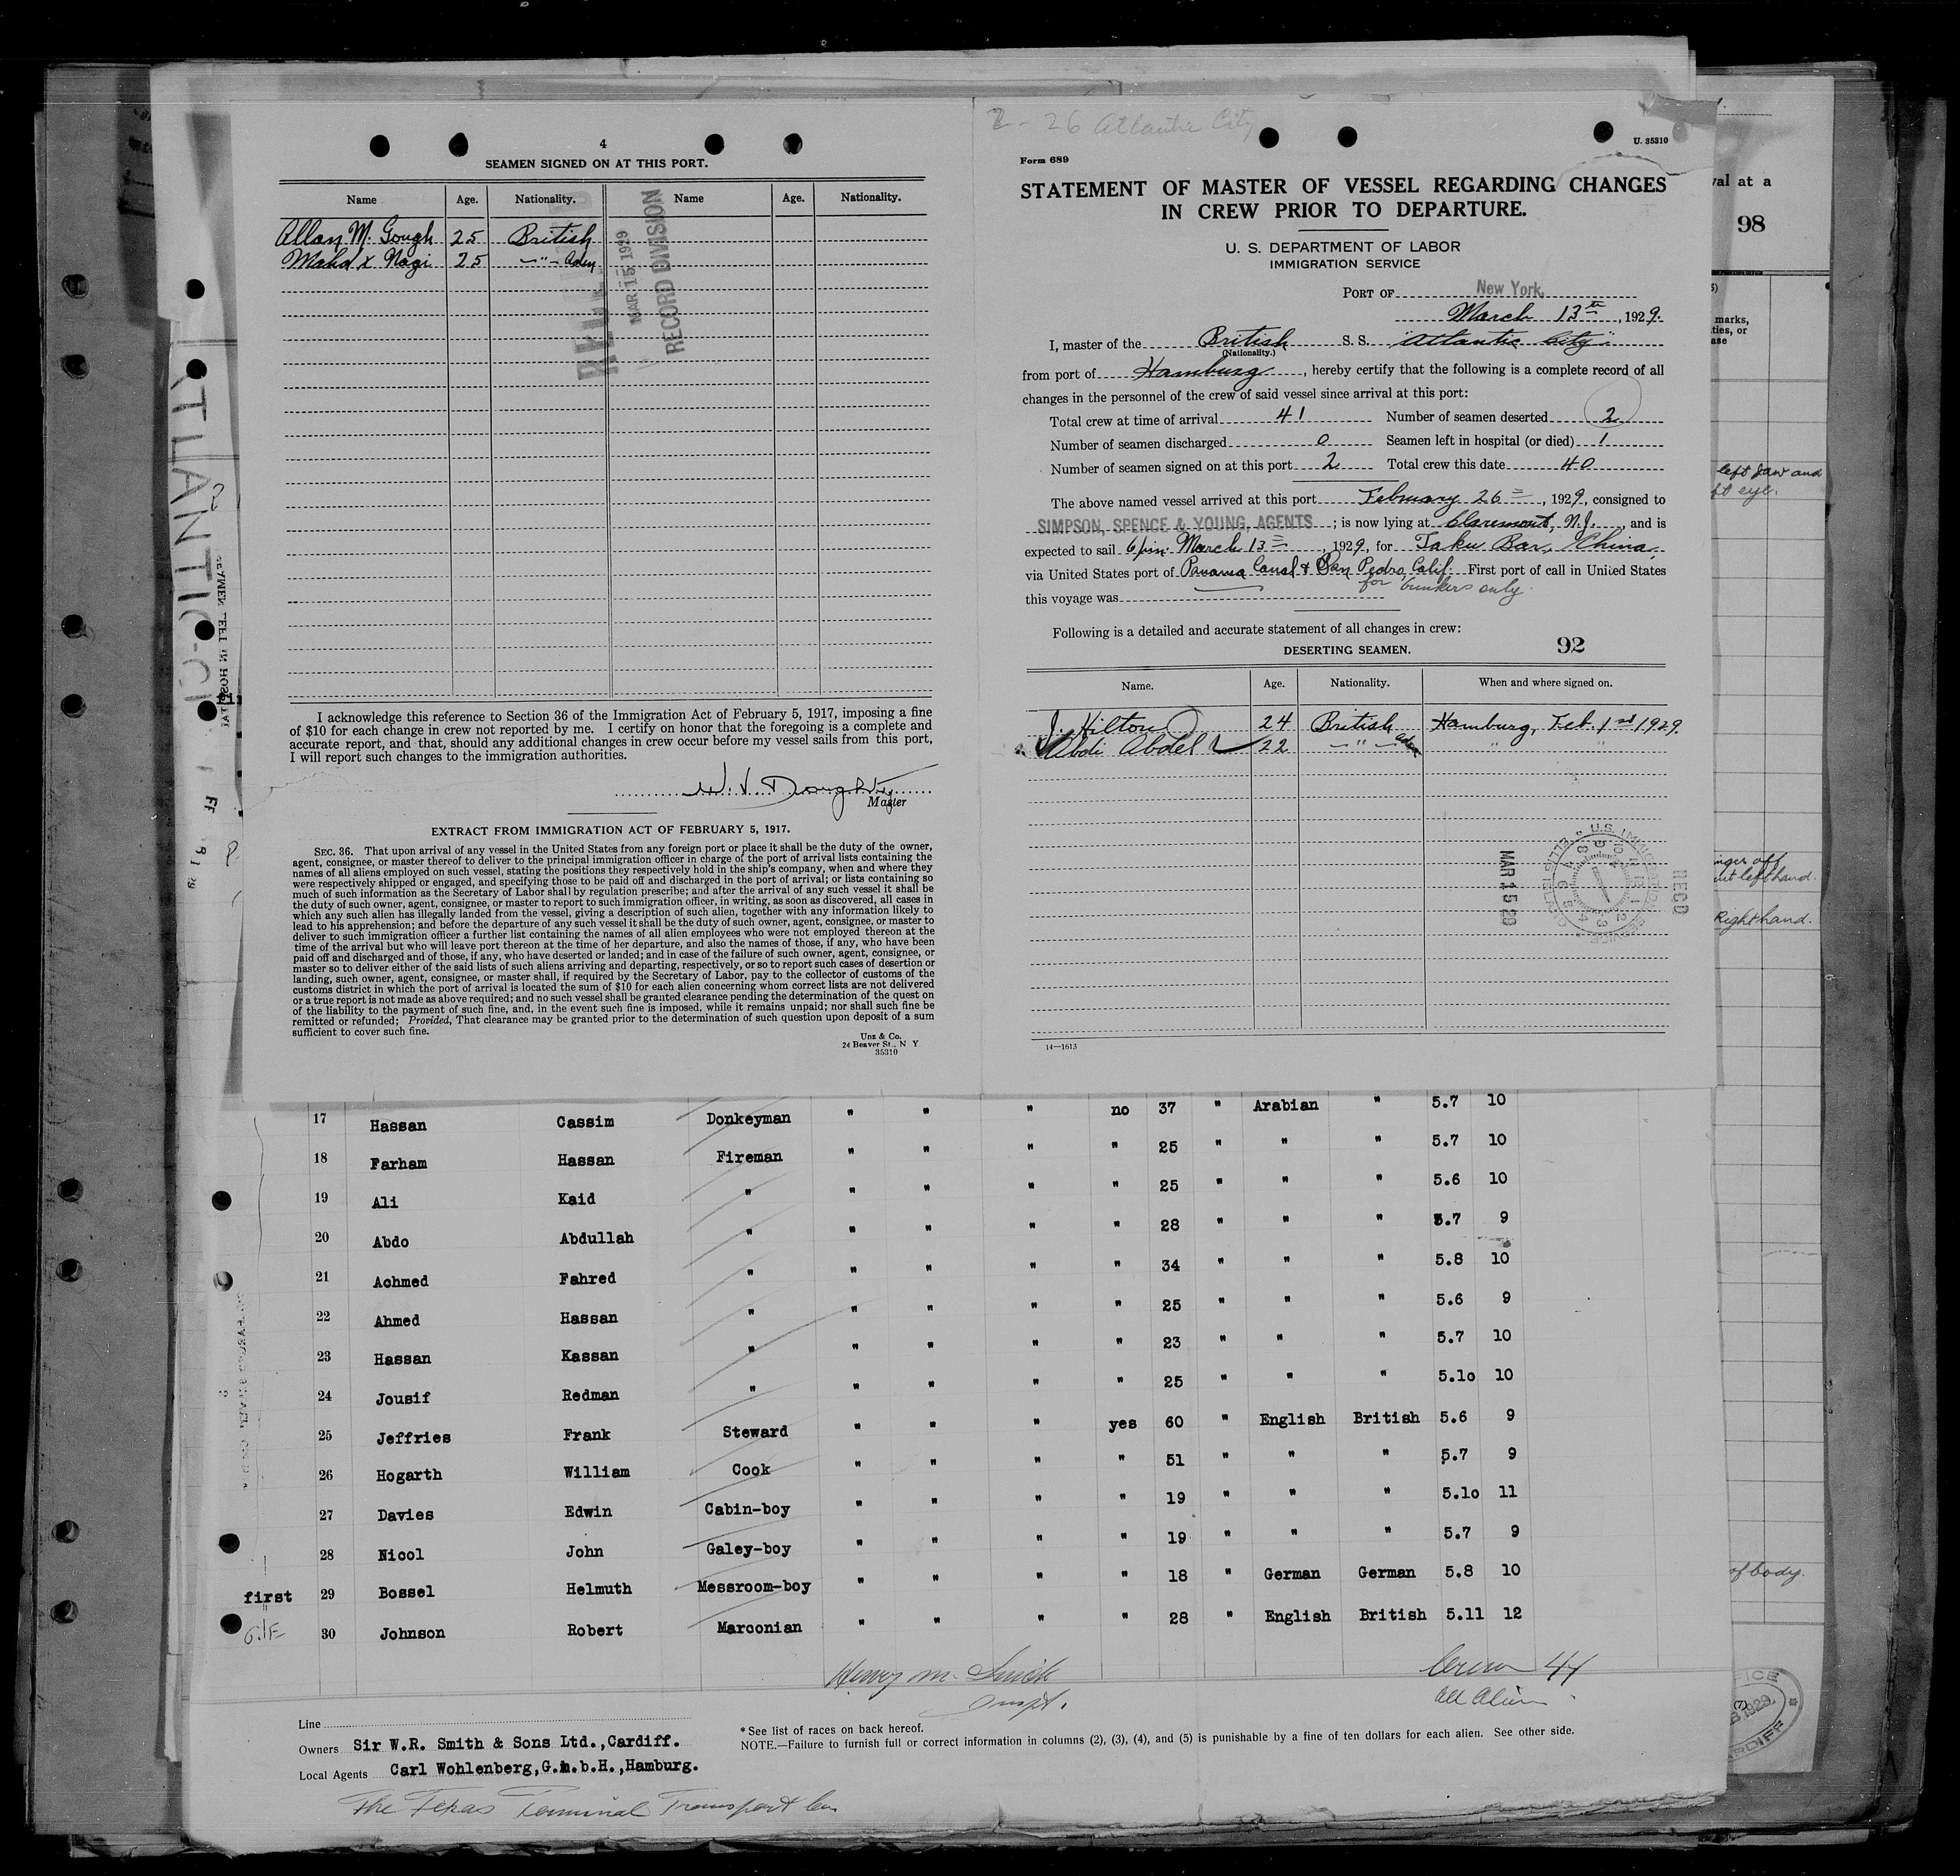 4
SEAMEN SIGNED ON AT THIS PORT.
Name Age. Nationality. Name Age. Nationality.
Allan M. Gough 25 British
Nagi 25 —"— Aden
MAR 15 1929
RECORD DIVISION
I acknowledge this reference to Section 36 of the Immigration Act of February 5, 1917, imposing a fine
of $10 for each change in crew not reported by me. I certify on honor that the foregoing is a complete and
accurate report, and that, should any additional changes in crew occur before my vessel sails from this port,
I will report such changes to the immigration authorities.
W. V. Doughty
Master
EXTRACT FROM IMMIGRATION ACT OF FEBRUARY 5, 1917.
SEC. 36. That upon arrival of any vessel in the United States from any foreign port or place it shall be the duty of the owner,
agent, consignee, or master thereof to deliver to the principal immigration officer in charge of the port of arrival lists containing the
names of all aliens employed on such vessel, stating the positions they respectively hold in the ship's company, when and where they
were respectively shipped or engaged, and specifying those to be paid off and discharged in the port of arrival; or lists containing so
much of such information as the Secretary of Labor shall by regulation prescribe; and after the arrival of any such vessel it shall be
the duty of such owner, agent, consignee, or master to report to such immigration officer, in writing, as soon as discovered, all cases in
which any such alien has illegally landed from the vessel, giving a description of such alien, together with any information likely to
lead to his apprehension; and before the departure of any such vessel it shall be the duty of such owner, agent, consignee, or master to
deliver to such immigration officer a further list containing the names of all alien employees who were not employed thereon at the
time of the arrival but who will leave port thereon at the time of her departure, and also the names of those, if any, who have been
paid off and discharged and of those, if any, who have deserted or landed; and in case of the failure of such owner, agent, consignee, or
master so to deliver either of the said lists of such aliens arriving and departing, respectively, or so to report such cases of desertion or
landing, such owner, agent, consignee, or master shall, if required by the Secretary of Labor, pay to the collector of customs of the
customs district in which the port of arrival is located the sum of $10 for each alien concerning whom correct lists are not delivered
or a true report is not made as above required; and no such vessel shall be granted clearance pending the determination of the quest on
of the liability to the payment of such fine, and, in the event such fine is imposed, while it remains unpaid; nor shall such fine be
remitted or refunded; Provided, That clearance may be granted prior to the determination of such question upon deposit of a sum
sufficient to cover such fine.
Unz & Co.
24 Beaver St., N Y
35310
2-26 Atlantic City
U. 35310
Form 689
STATEMENT OF MASTER OF VESSEL REGARDING CHANGES
IN CREW PRIOR TO DEPARTURE.
U. S. DEPARTMENT OF LABOR
IMMIGRATION SERVICE
PORT OF New York,
March 13th, 1929.
I, master of the British S. S. "Atlantic City"
(Nationality.)
from port of Hamburg, hereby certify that the following is a complete record of all
changes in the personnel of the crew of said vessel since arrival at this port:
Total crew at time of arrival 41 Number of seamen deserted 2
Number of seamen discharged 0 Seamen left in hospital (or died) 1
Number of seamen signed on at this port 2 Total crew this date 40
The above named vessel arrived at this port February 26, 1929, consigned to
SIMPSON, SPENCE & YOUNG, AGENTS ; is now lying at Claremont, N.J., and is
expected to sail 6 pm March 13, 1929, for Taku Bar, China,
via United States port of Panama Canal & San Pedro, Calif. First port of call in United States
this voyage was for bunkers only
Following is a detailed and accurate statement of all changes in crew:
92
DESERTING SEAMEN.
Name. Age. Nationality. When and where signed on.
J. Hilton 24 British Hamburg, Feb. 1st 1929.
Abdi Abdel 22 —"— Aden " "
MAR 15 29
RECD
14—1613
val at a
98
marks,
left jaw and
eye.
finger off
left hand.
Right hand.
of body.
ATLANTIC-CI
17 Hassan Cassim Donkeyman " " " no 37 " Arabian " 5.7 10
18 Farham Hassan Fireman " " " " 25 " " " 5.7 10
19 Ali Kaid " " " " " 25 " " " 5.6 10
20 Abdo Abdullah " " " " " 28 " " " 5.7 9
21 Achmed Fahred " " " " " 34 " " " 5.8 10
22 Ahmed Hassan " " " " " 25 " " " 5.6 9
23 Hassan Kassan " " " " " 23 " " " 5.7 10
24 Jousif Redman " " " " " 25 " " " 5.10 10
25 Jeffries Frank Steward " " " yes 60 " English British 5.6 9
26 Hogarth William Cook " " " " 51 " " " 5.7 9
27 Davies Edwin Cabin-boy " " " " 19 " " " 5.10 11
28 Nicol John Galey-boy " " " " 19 " " " 5.7 9
first 29 Bossel Helmuth Messroom-boy " " " " 18 " German German 5.8 10
30 Johnson Robert Marconian " " " " 28 " English British 5.11 12
Henry M. Smick
Inspt.
Crew 41
all alien
Line
Owners Sir W.R. Smith & Sons Ltd.,Cardiff.
Local Agents Carl Wohlenberg,G.m.b.H.,Hamburg.
* See list of races on back hereof.
NOTE.—Failure to furnish full or correct information in columns (2), (3), (4), and (5) is punishable by a fine of ten dollars for each alien. See other side.
The Texas Terminal Transport Co